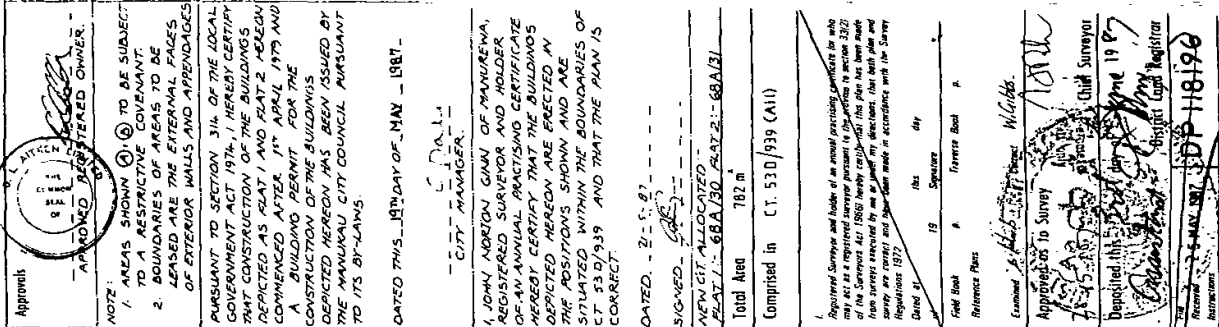 Approvals
AITKEN LIMITED
THE
COMMON
SEAL
OF
APPROVED REGISTERED OWNER.
NOTE:
1. AREAS SHOWN Ⓐ, Ⓑ TO BE SUBJECT
TO A RESTRICTIVE COVENANT.
2. BOUNDARIES OF AREAS TO BE
LEASED ARE THE EXTERNAL FACES
OF EXTERIOR WALLS AND APPENDAGES
PURSUANT TO SECTION 314 OF THE LOCAL
GOVERNMENT ACT 1974, I HEREBY CERTIFY
THAT CONSTRUCTION OF THE BUILDINGS
DEPICTED AS FLAT 1 AND FLAT 2 HEREON
COMMENCED AFTER 1ST APRIL 1979 AND
A BUILDING PERMIT FOR THE
CONSTRUCTION OF THE BUILDINGS
DEPICTED HEREON HAS BEEN ISSUED BY
THE MANUKAU CITY COUNCIL PURSUANT
TO ITS BY-LAWS.
DATED THIS 19TH DAY OF MAY 1987
CITY MANAGER.
I, JOHN NORTON GINN OF MANUREWA,
REGISTERED SURVEYOR AND HOLDER
OF AN ANNUAL PRACTISING CERTIFICATE
HEREBY CERTIFY THAT THE BUILDINGS
DEPICTED HEREON ARE ERECTED IN
THE POSITIONS SHOWN AND ARE
SITUATED WITHIN THE BOUNDARIES OF
CT 53D/939 AND THAT THE PLAN IS
CORRECT.
DATED 21-5-87
SIGNED
NEW C'sT ALLOCATED:-
FLAT 1:- 68A/30 FLAT 2:- 68A/31
Total Area 782 m²
Comprised in C.T. 53D/939 (All)
I,
Registered Surveyor and holder of an annual practising certificate (or who
may act as a registered surveyor pursuant to the proviso to section 33(2)
of the Surveyors Act 1966) hereby certify that this plan has been made
from surveys executed by me or under my directions, that both plan and
survey are correct and have been made in accordance with the Survey
Regulations 1972
Dated at this day
of 19 Signature
Field Book p. Traverse Book p.
Reference Plans
Examined Correct
Approved as to Survey
Chief Surveyor
Deposited this day of June 1987
District Land Registrar
File
Received 25 MAY 1987 DP 118196
Instructions